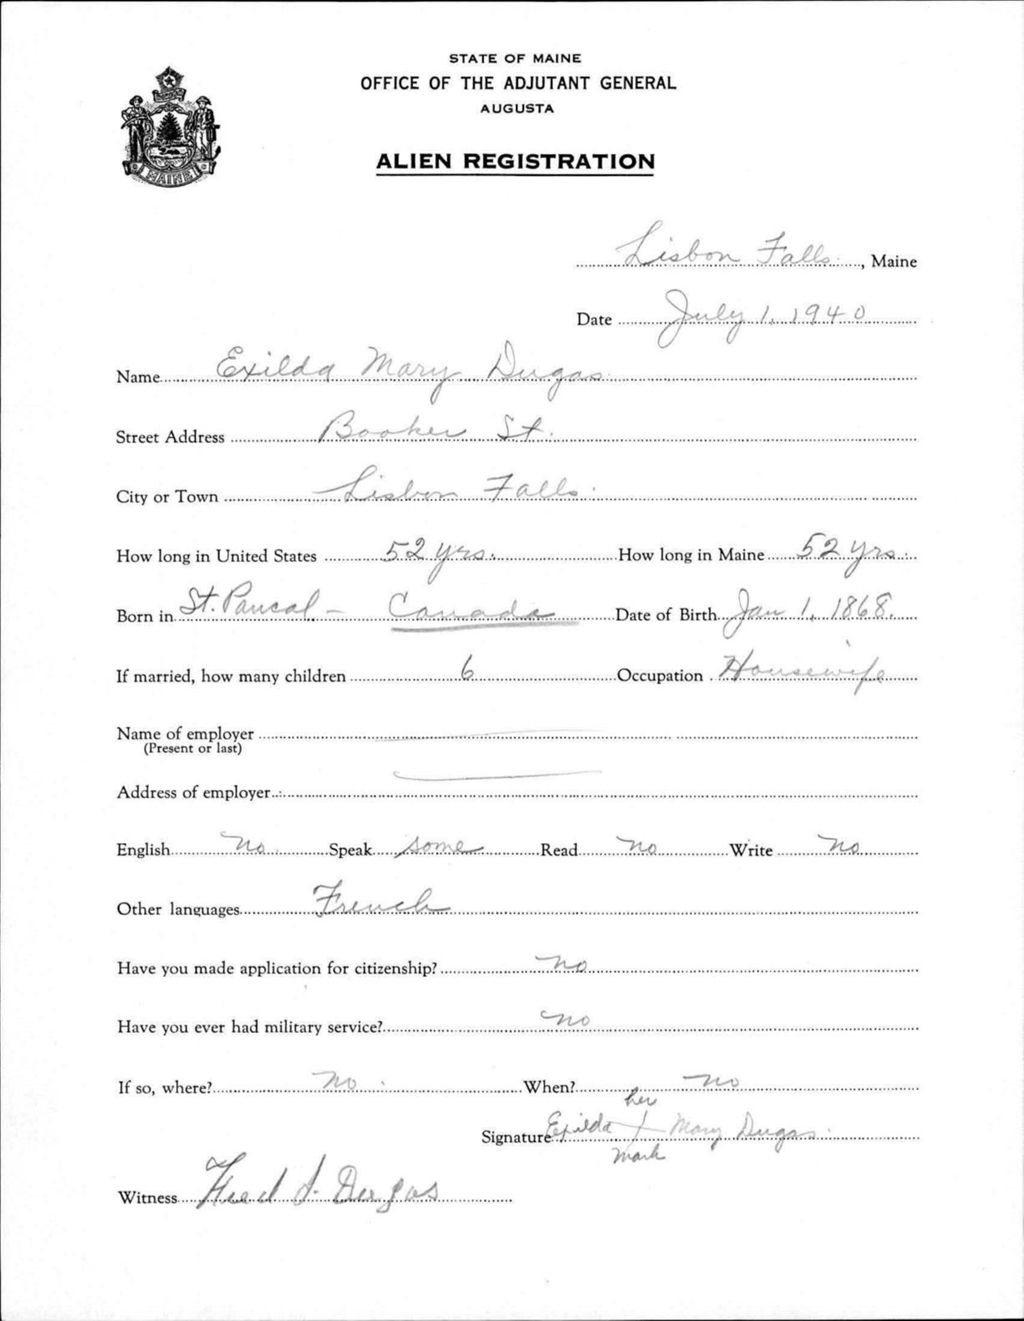 STATE OF MAINE
OFFICE OF THE ADJUTANT GENERAL
AUGUSTA
ALIEN REGISTRATION
MAINE
Lisbon Falls, Maine
Date July 1, 1940
Name Exilda Mary Dugas
Street Address Booker St.
City or Town Lisbon Falls
How long in United States 52 yrs. How long in Maine 52 yrs.
Born in St. Pascal - Canada Date of Birth Jan 1, 1868.
If married, how many children 6 Occupation Housewife
Name of employer
(Present or last)
Address of employer
English No Speak some Read No Write No
Other languages French
Have you made application for citizenship? no
Have you ever had military service? no
If so, where? No When? no
her
Signature Exilda X Mary Dugas
mark
Witness Fred J. Dugas